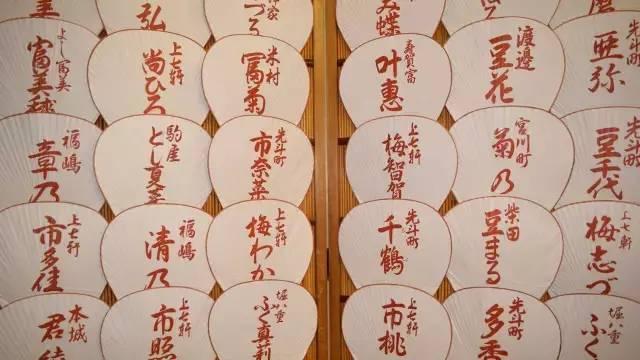 弘
づる
蝶
よし冨美
富美毬
上七軒
尚ひろ
米村
冨菊
寿賀富
叶惠
渡邊
豆花
先斗町
亜弥
福嶋
章乃
駒屋
先斗町
市奈菜
上七軒
梅智賀
宮川町
菊乃
先斗町
豆千代
上七軒
市多佳
福嶋
清乃
上七軒
梅わか
先斗町
千鶴
柴田
豆まる
上七軒
梅志づ
本城
君
上七軒
市照
堀八重
ふく真利
上七軒
市桃
先斗町
多香
堀八重
ふく